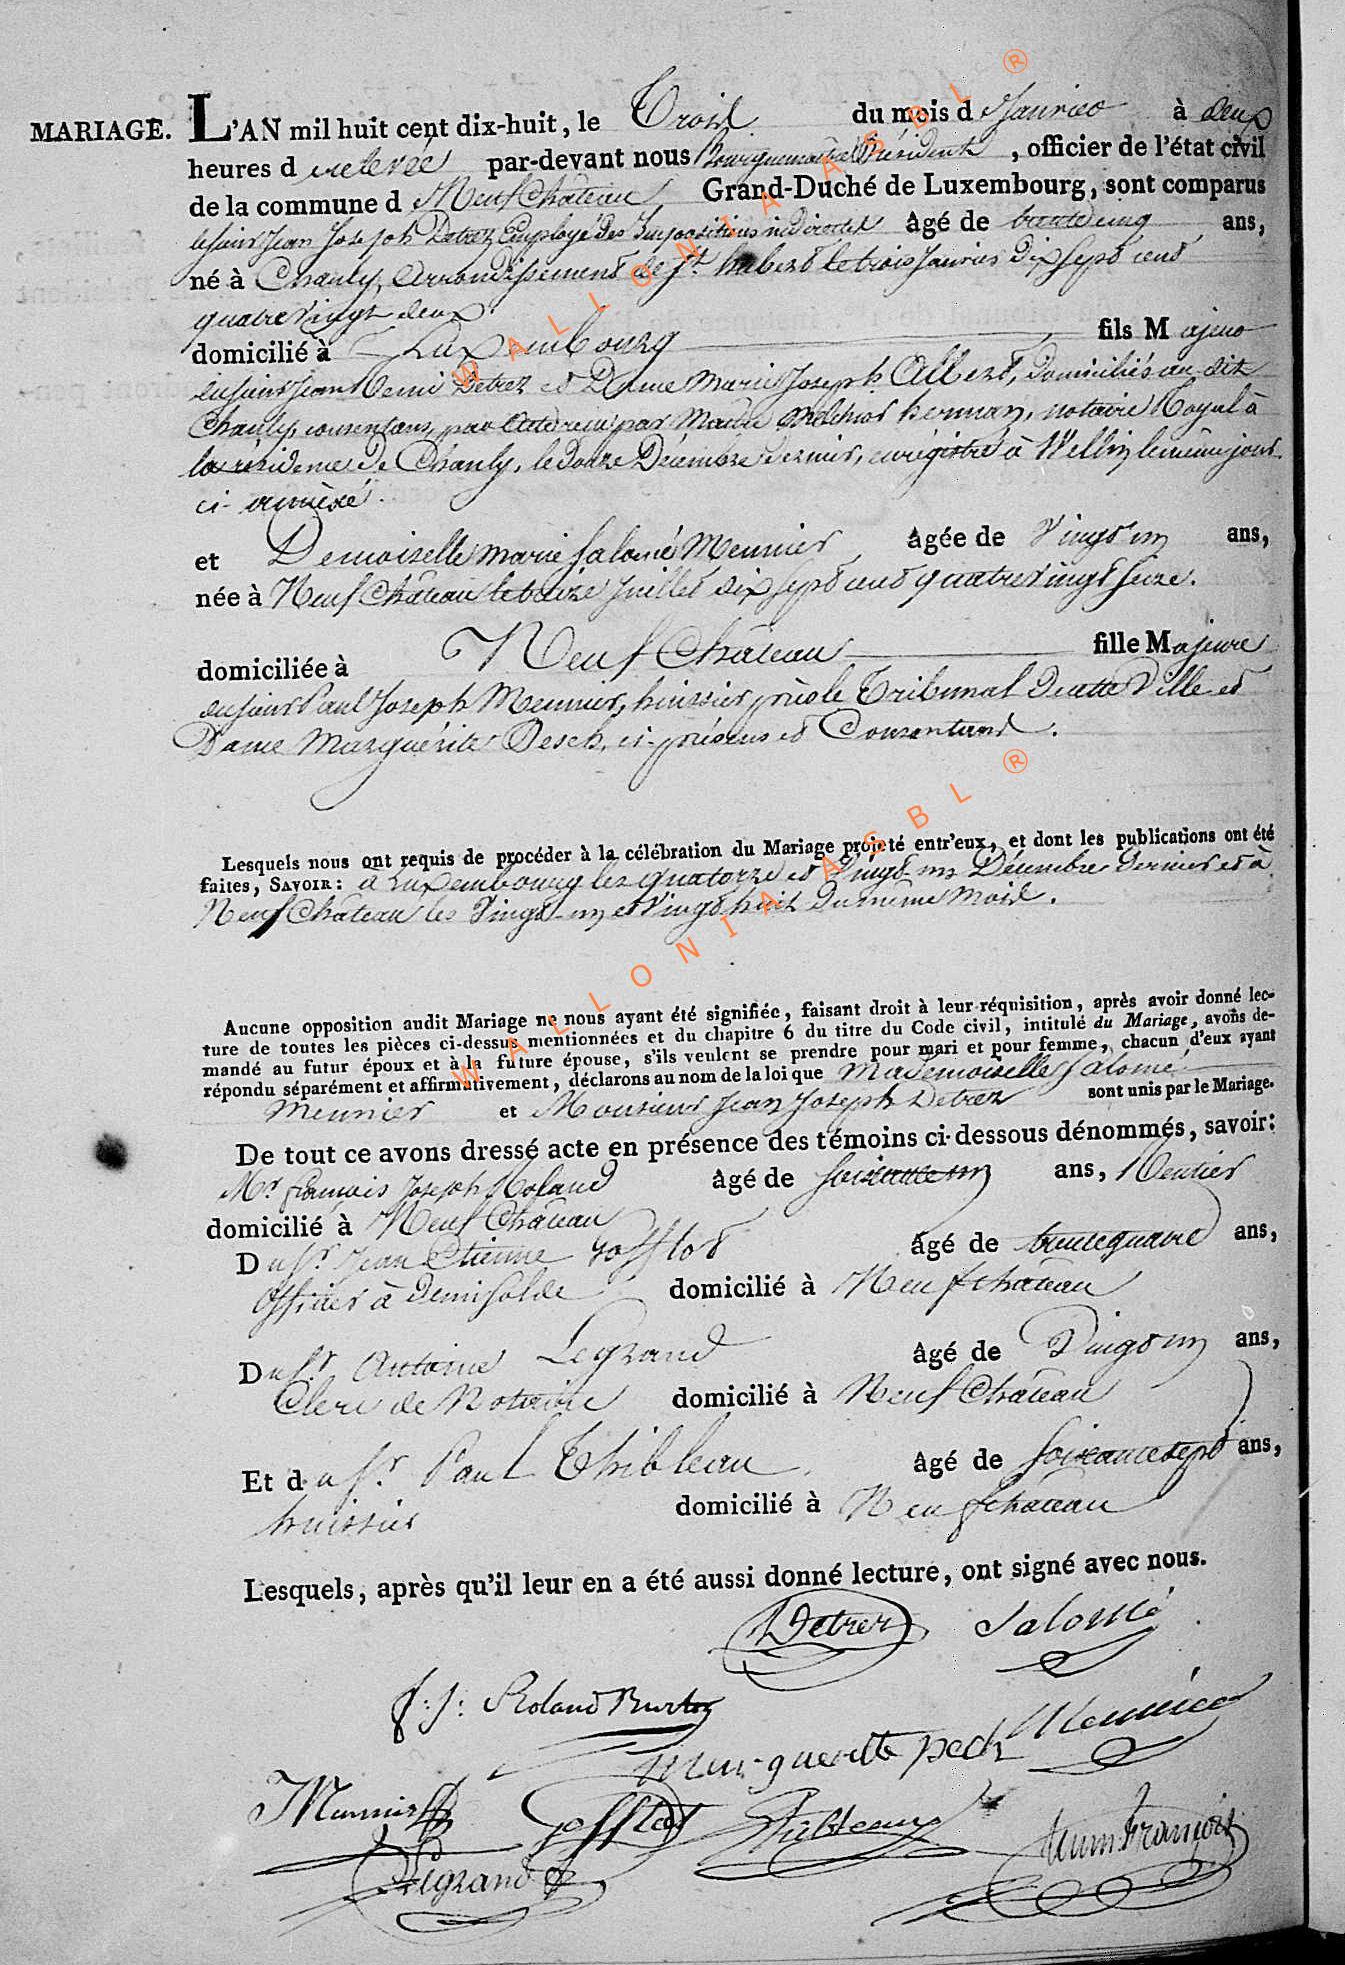 MARIAGE. L'AN mil huit cent dix-huit, le Trois du mois d Janvier à deux
heures d relevée par-devant nous Bourguemaitre Président, officier de l'état civil
de la commune d Neufchâteau, Grand-Duché de Luxembourg, sont comparus
le sieur Jean Joseph Detrez Employé des Impositions indirectes âgé de trente cinq ans,
né à Chanly, arrondissement de St. hubert le trois Janvier Dix sept cent
quatre Vingt deux
domicilié à Luxembourg fils Majeur
du sieur Jean Remi Detrez et Dame Marie Joseph Albert, Domiciliés au dit
Chanly, consentans, par Acte reçu par Maitre Melchior herman, notaire Royal à
la résidence de Chanly, le douze Décembre dernier, enrégistré à Wellin le même jour
ci-annèxé.
et Demoiselle Marie Salomé Meunier, âgée de Vingt un ans,
née à Neufchâteau le treize Juillet dix sept cent quatre vingt seize.
domiciliée à Neufchâteau fille Majeure
du sieur Paul Joseph Meunier, huissier près le Tribunal de cette Ville et
Dame Marguérite Pesch, ci-présens et Consentans.
Lesquels nous ont requis de procéder à la célébration du Mariage projeté entr'eux, et dont les publications ont été
faites, SAVOIR: a Luxembourg les quatorze et Vingt un Décembre dernier et à
Neufchâteau les Vingt-un et Vingt huit du même Mois.
Aucune opposition audit Mariage ne nous ayant été signifiée, faisant droit à leur réquisition, après avoir donné lec-
ture de toutes les pièces ci-dessus mentionnées et du chapitre 6 du titre du Code civil, intitulé du Mariage, avons de-
mandé au futur époux et à la future épouse, s'ils veulent se prendre pour mari et pour femme, chacun d'eux ayant
répondu séparément et affirmativement, déclarons au nom de la loi que Mademoiselle Salomé
Meunier et Monsieur Jean Joseph Detrez sont unis par le Mariage.
De tout ce avons dressé acte en présence des témoins ci-dessous dénommés, savoir:
Mr. françois Joseph Roland âgé de soixante un ans, Rentier
domicilié à Neufchâteau
Du Sr. Jean Etienne Gofflot âgé de trente quatre ans,
Officier à Demi solde domicilié à Neufchâteau
Du Sr. Antoine Legrand âgé de Vingt un ans,
Clerc de Notaire domicilié à Neufchâteau
Et du Sr. Paul Thibleau âgé de soixante sept ans,
huissier domicilié à Neufchâteau
Lesquels, après qu'il leur en a été aussi donné lecture, ont signé avec nous.
Detrez Salomé
f: j: Roland
Margueritte pesch Meunier
Meunier Gofflot Thibleau françois
Legrand
WALLONIA ASBL ®
WALLONIA ASBL ®